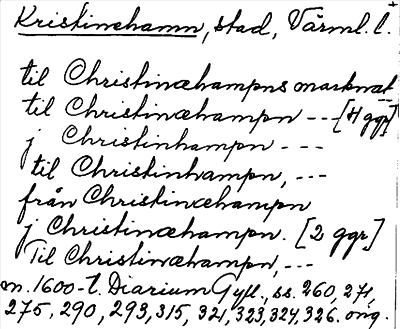 Kristinehamn, stad, Värml. l.
til Christinæhampns marknat
til Christinæhampn --- [4 ggr]
j Christinhampn ---
til Christinhampn, ---
från Christinæhampn
j Christinæhampn. [2 ggr]
Til Christinæhampn, ---
m. 1600-t. Diarium Gyll., ss. 260, 271,
275, 290, 293, 315, 321, 323, 324, 326. orig.